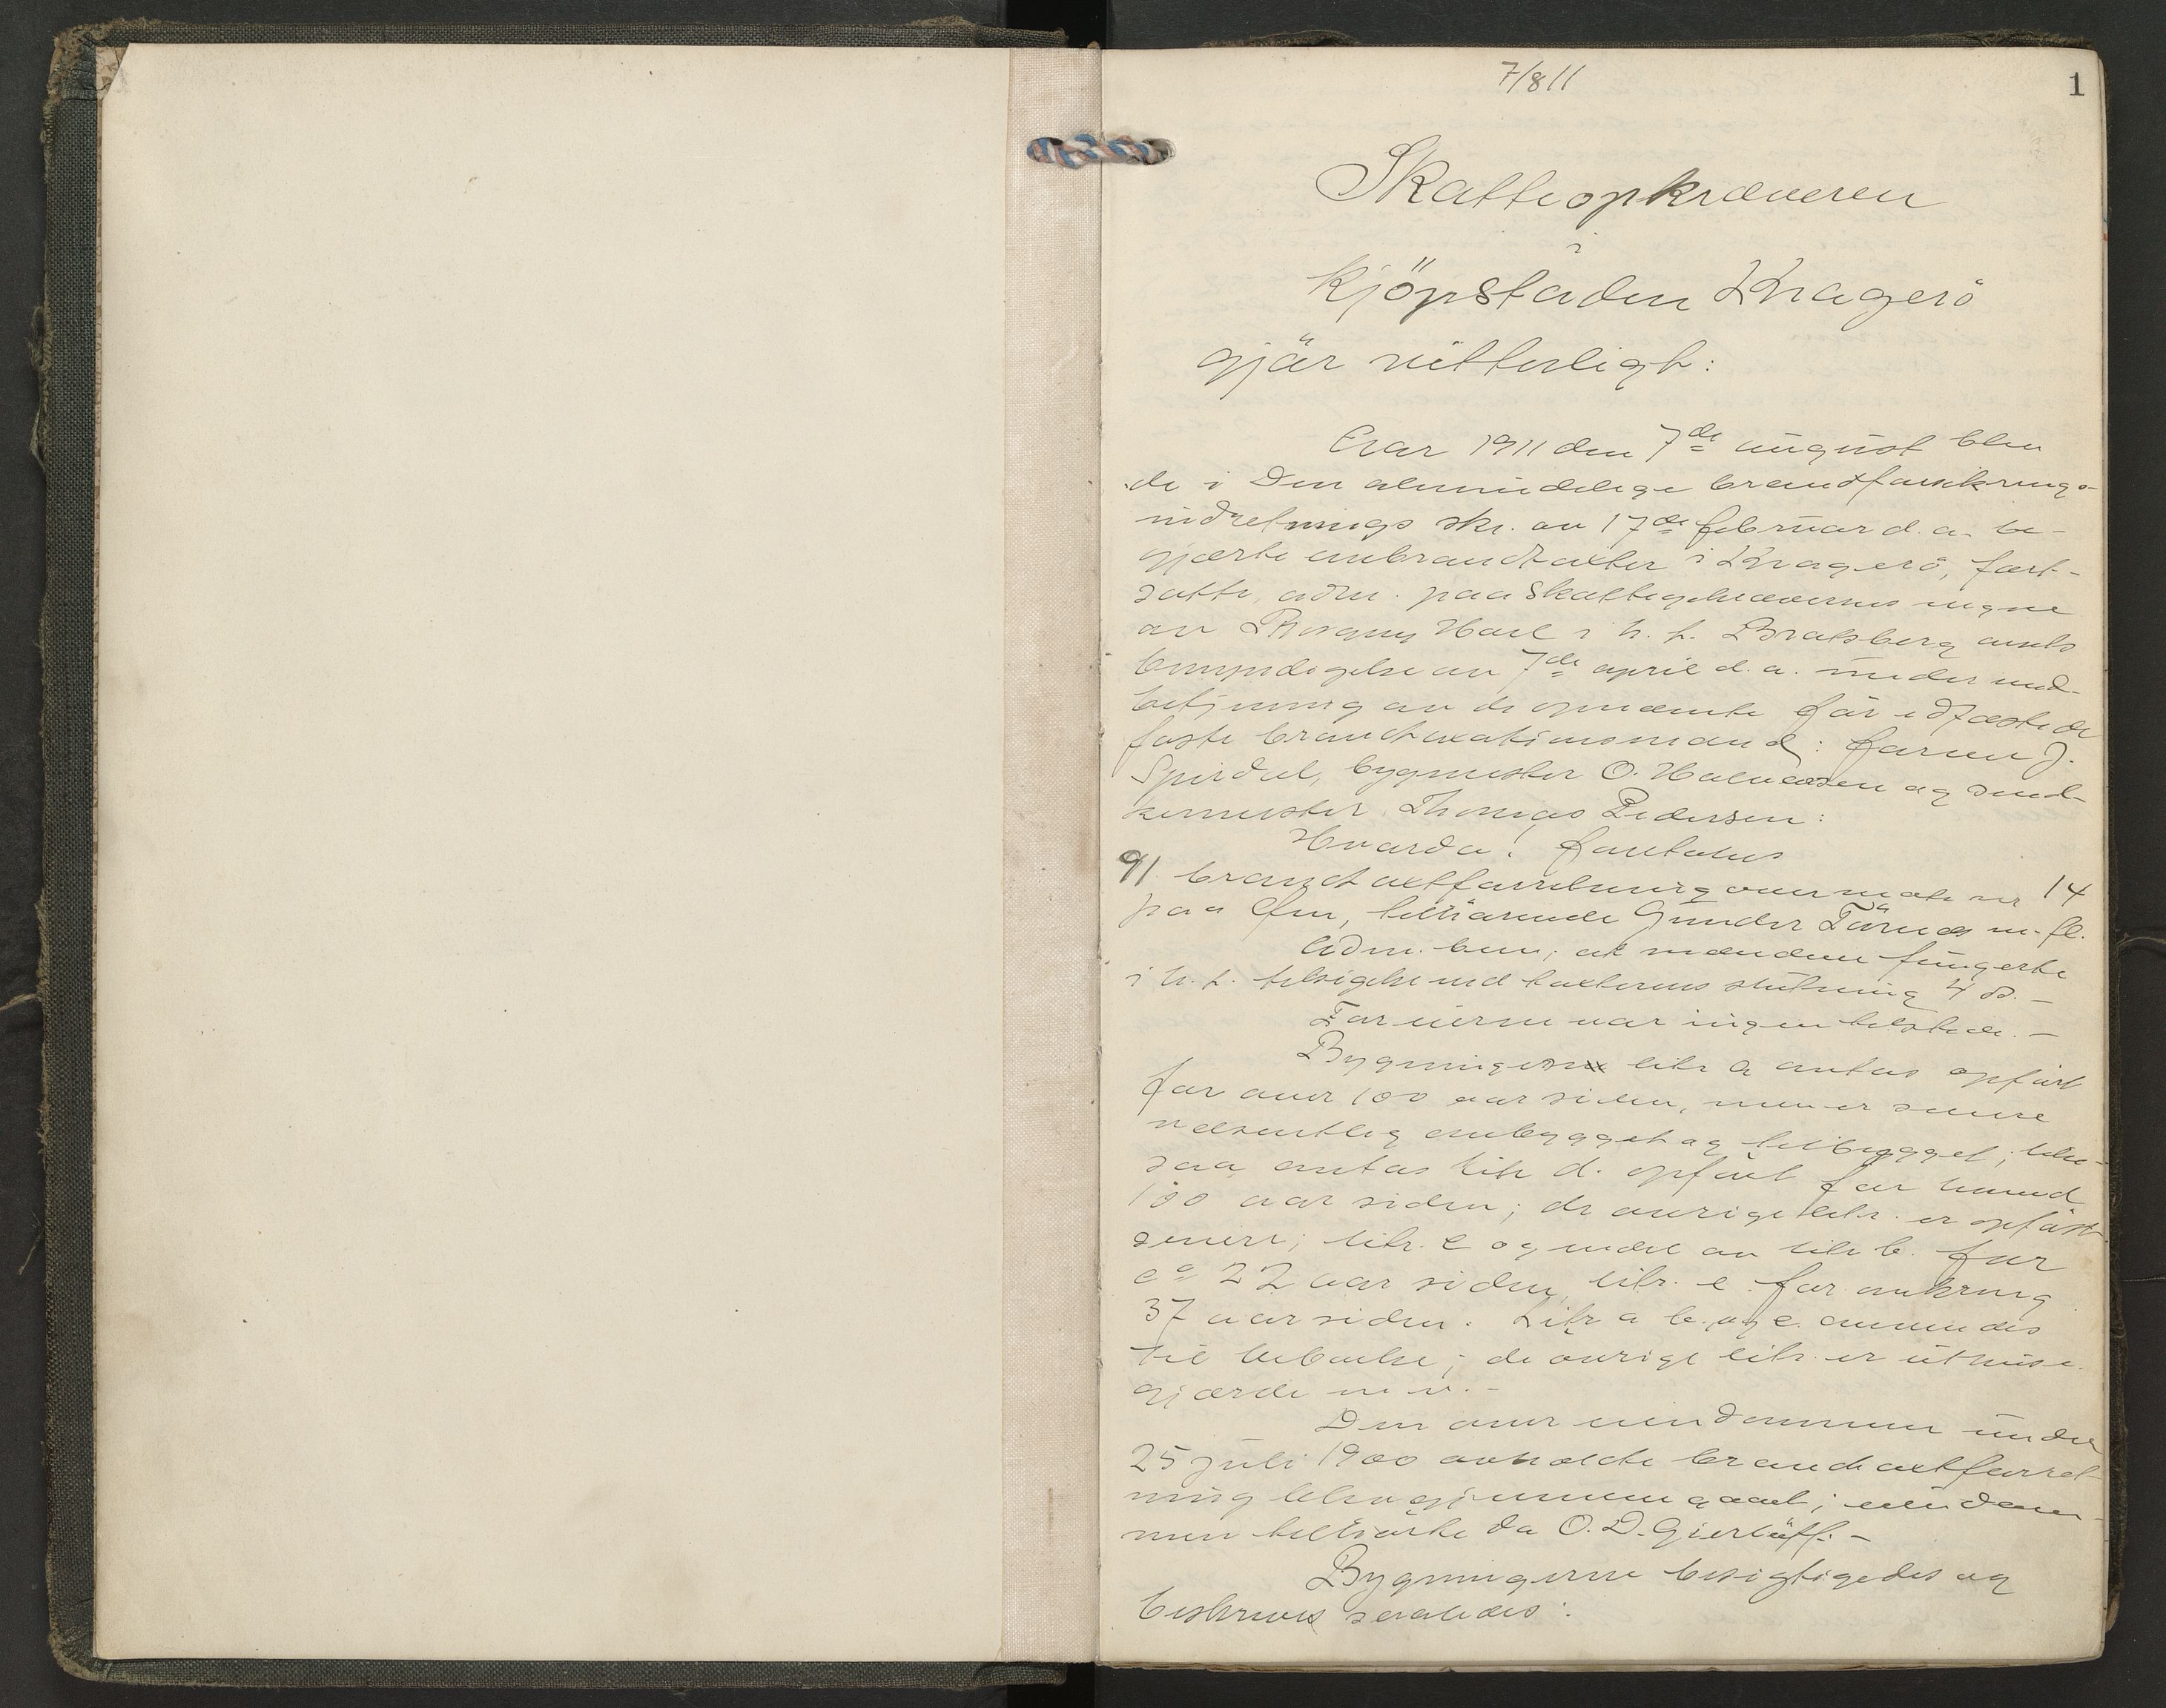 7/8 11
1
Skatteopkræveren
i
Kjöpstaden Kragerö
gjör vitterligt:
Aar 1911 den 7de august blev
de i Den almindelige brandforsikrings-
indretnings skr. av 17de februar d. a. be-
gjærte ombrandtakster i Kragerö, fort-
satte, adm. paa Skatteopkræverens vegne
av i h. t. Bratsberg amts
bemyndigelse av 7de april d. a. under med-
betjening av de opnævnte før edfæstede
faste brandtaxationsmænd: farver J.
Spirdal, bygmester O. Halvorsen og sned-
kermester Thomas Pedersen:
Hvorda! foretokes
91 brandtaxtforretning over matr nr 14
paa Øen, tilhørende Gunder m. fl.
Adm. bem., at mændene fungerte
i h. t. tilsigelse ved taxterens slutning 4 ds. –
For eierne var ingen tilstede. –
Bygningen litr a antas opført
for over 100 aar siden, men er senere
væsentlig ombygget og tilbygget; like-
saa antas litr d. opført for henved
100 aar siden; de øvrige litr. er opført
senere; litr. c og endel av litr b. for
ca 22 aar siden, litr. e for omkring
37 aar siden. Litr a b. og c. anvendes
til beboelse; de øvrige litr. er uthuse
gjærde m v. –
Den over eiendommen under
25 juli 1900 avholdte brandtaxtforret-
ning blev gjennemgaaet; eiendom-
men tilhørte da O. D. Gierløff. –
Bygningerne besigtigedes og
beskrives saaledes: